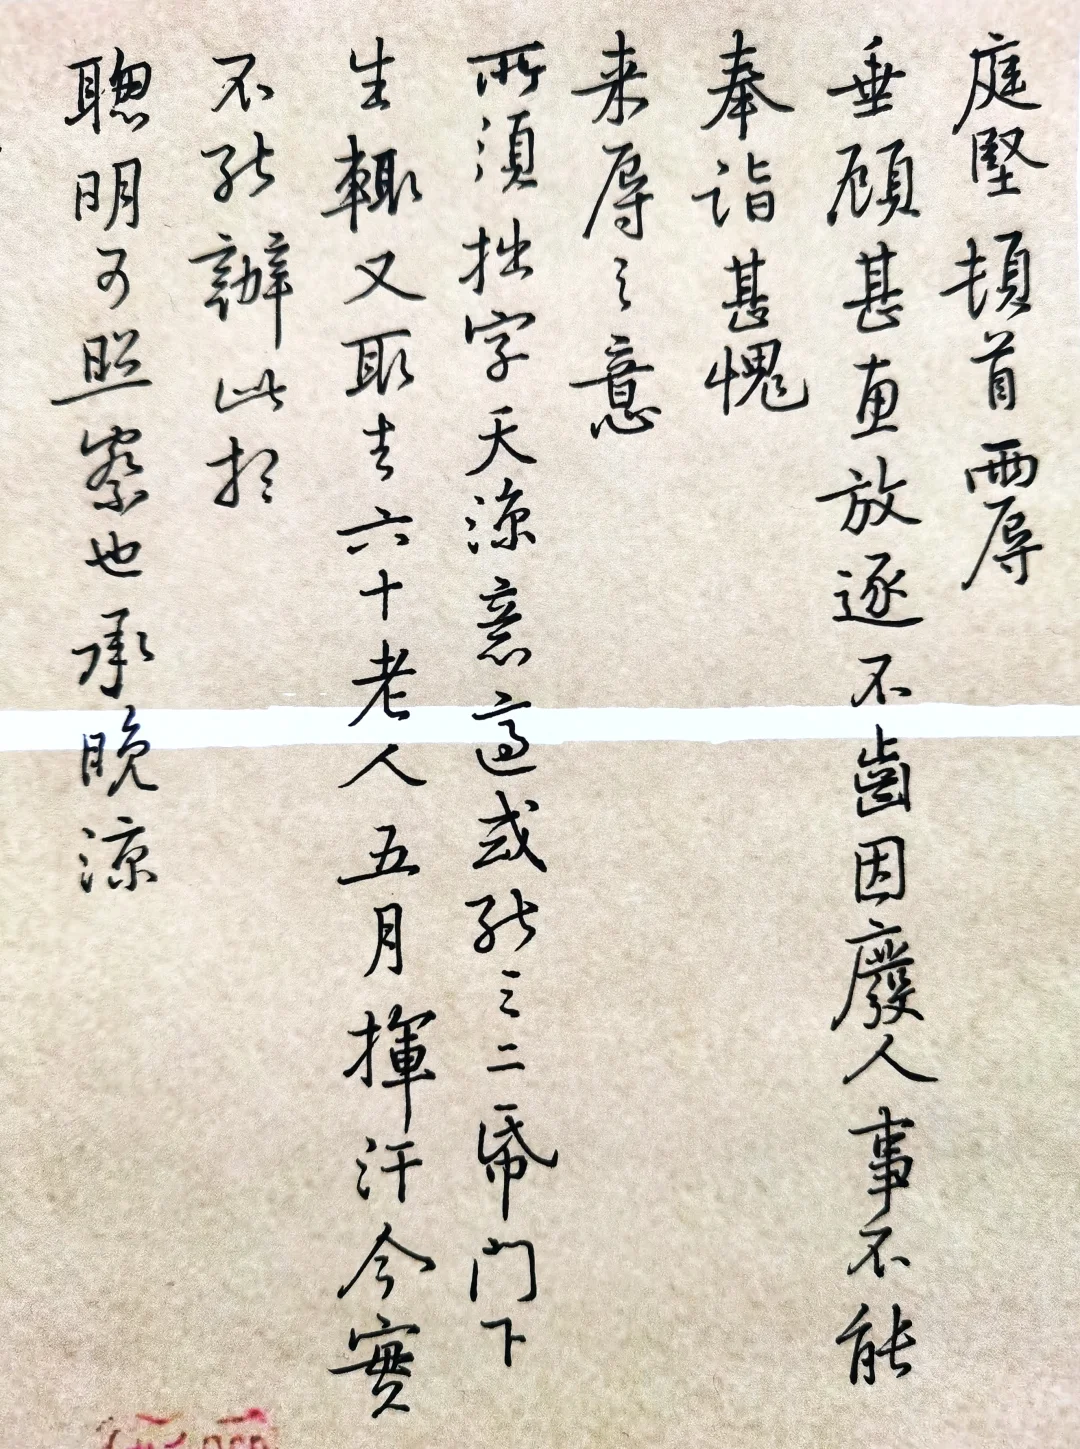 庭堅頓首兩辱
垂顧甚惠放逐不齒因廢人事不能
奉詣甚愧
来辱之意
所須拙字天涼意適或能三二紙門下
生輒又取去六十老人五月揮汗今實
不能辦此想
聰明可照察也承晚涼